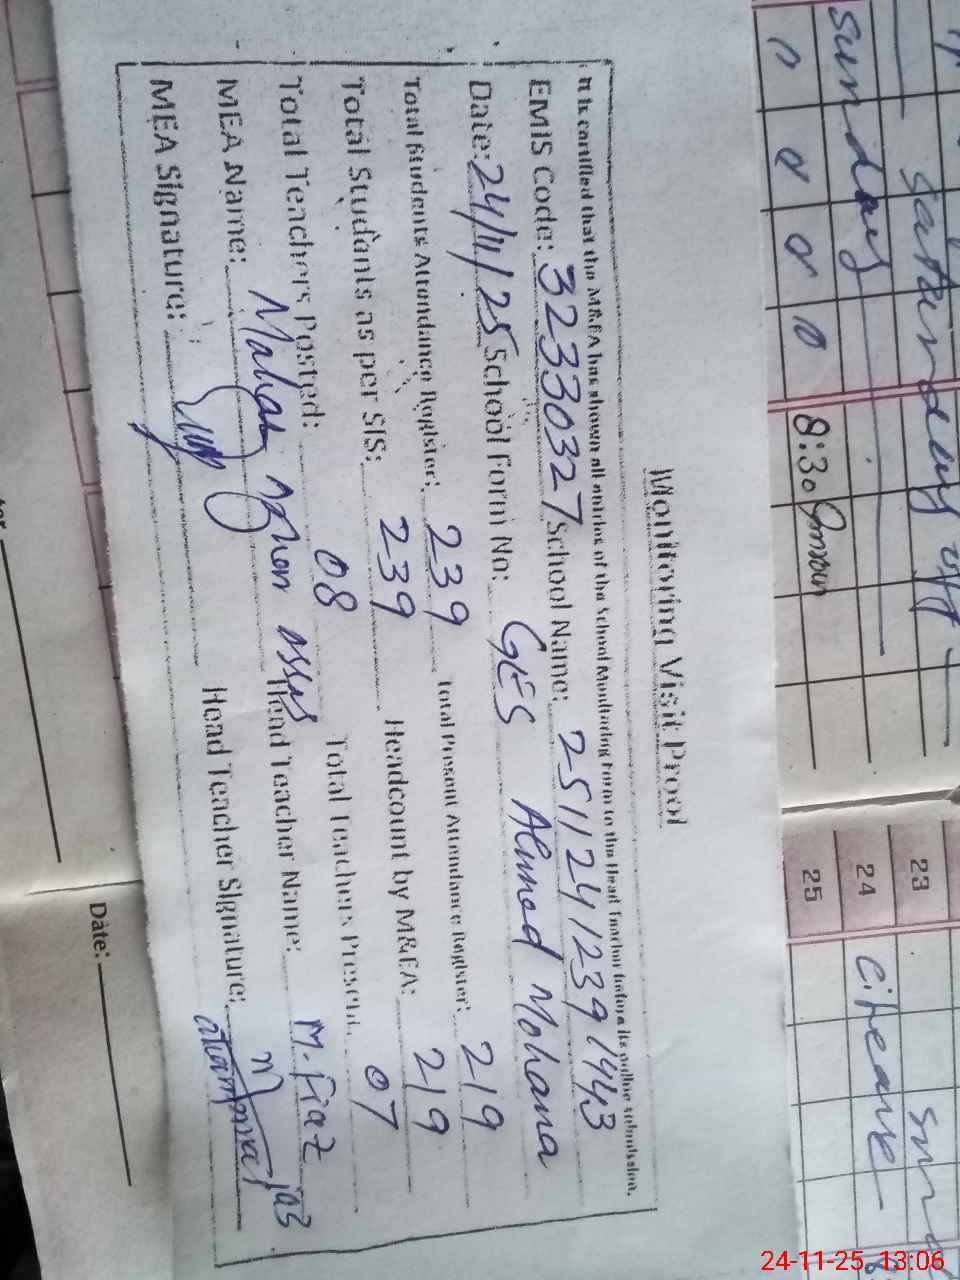 Monitoring Visit Proof
It is certified that the M&EA has shown all entries of the School Monitoring Form to the Head Teacher before its online submission.
EMIS Code: 32330327 School Name: 25112412391443
Date: 24/11/25 School Form No: GES Ahmad Mohana
Total Students Attendance Register: 239 Total Present Attendance Register: 219
Total Students as per SIS: 239 Headcount by M&EA: 219
Total Teachers Posted: 08 Total Teachers Present: 07
MEA Name: Head Teacher Name: M. fiaz
MEA Signature: Head Teacher Signature:
Saturday off
Sunday
8:30
23
24
25
Date:
24-11-25 13:06